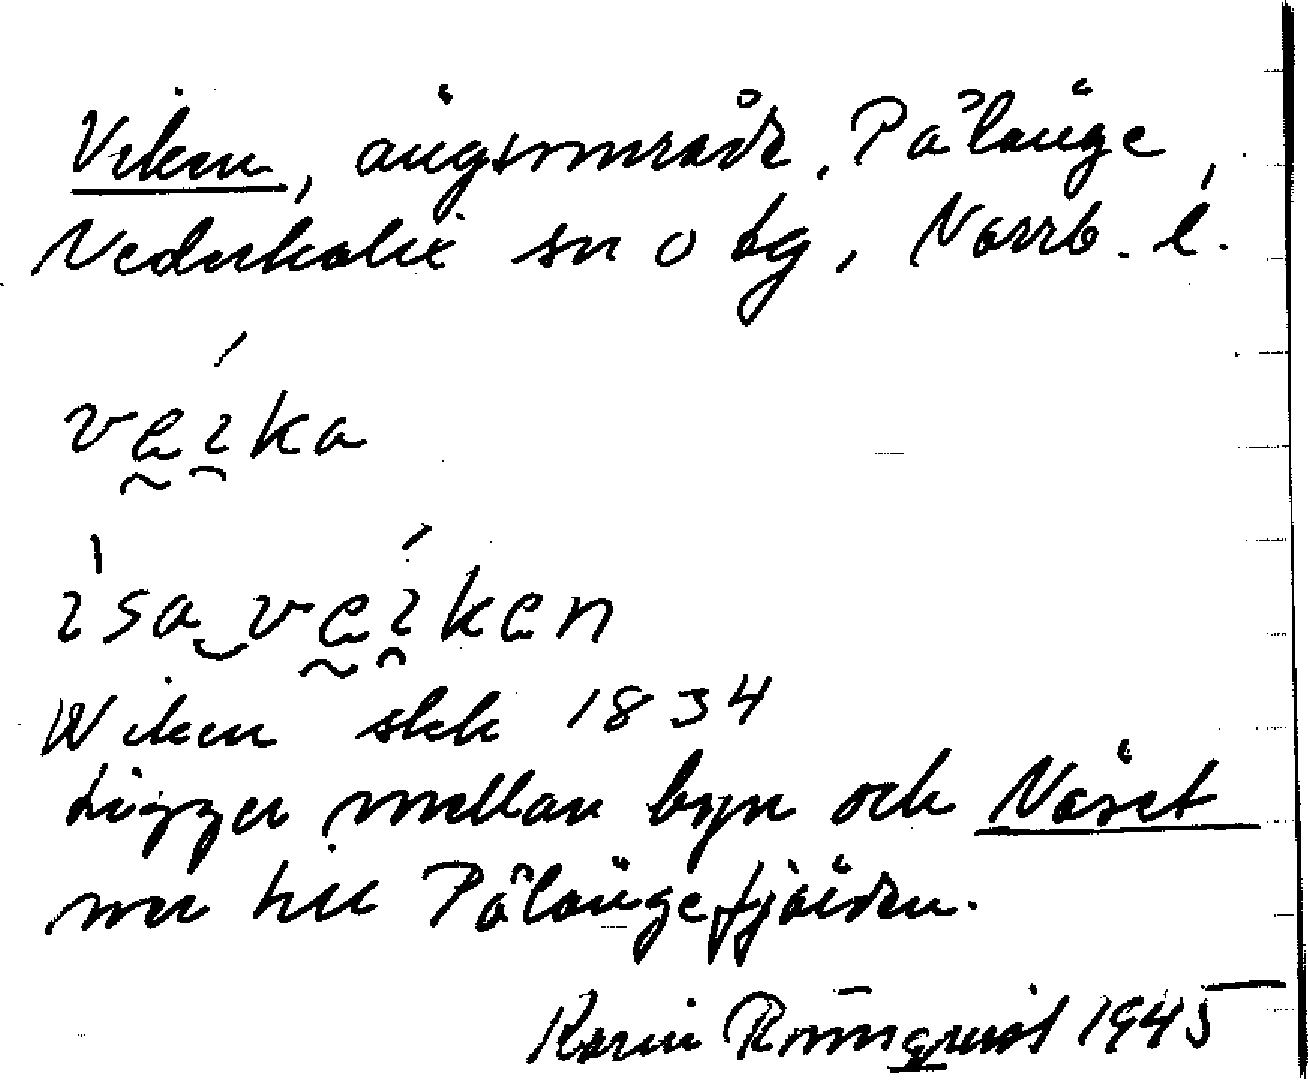 Viken, ängsområde, Pålänge,
Nederkalix sn o tg, Norrb. l.
vęi̯ka
isa‿vęi̯ken
Wiken skk 1834
Ligger mellan byn och Näset
ner till Pålängefjärden.
Karin Rönnqvist 1945